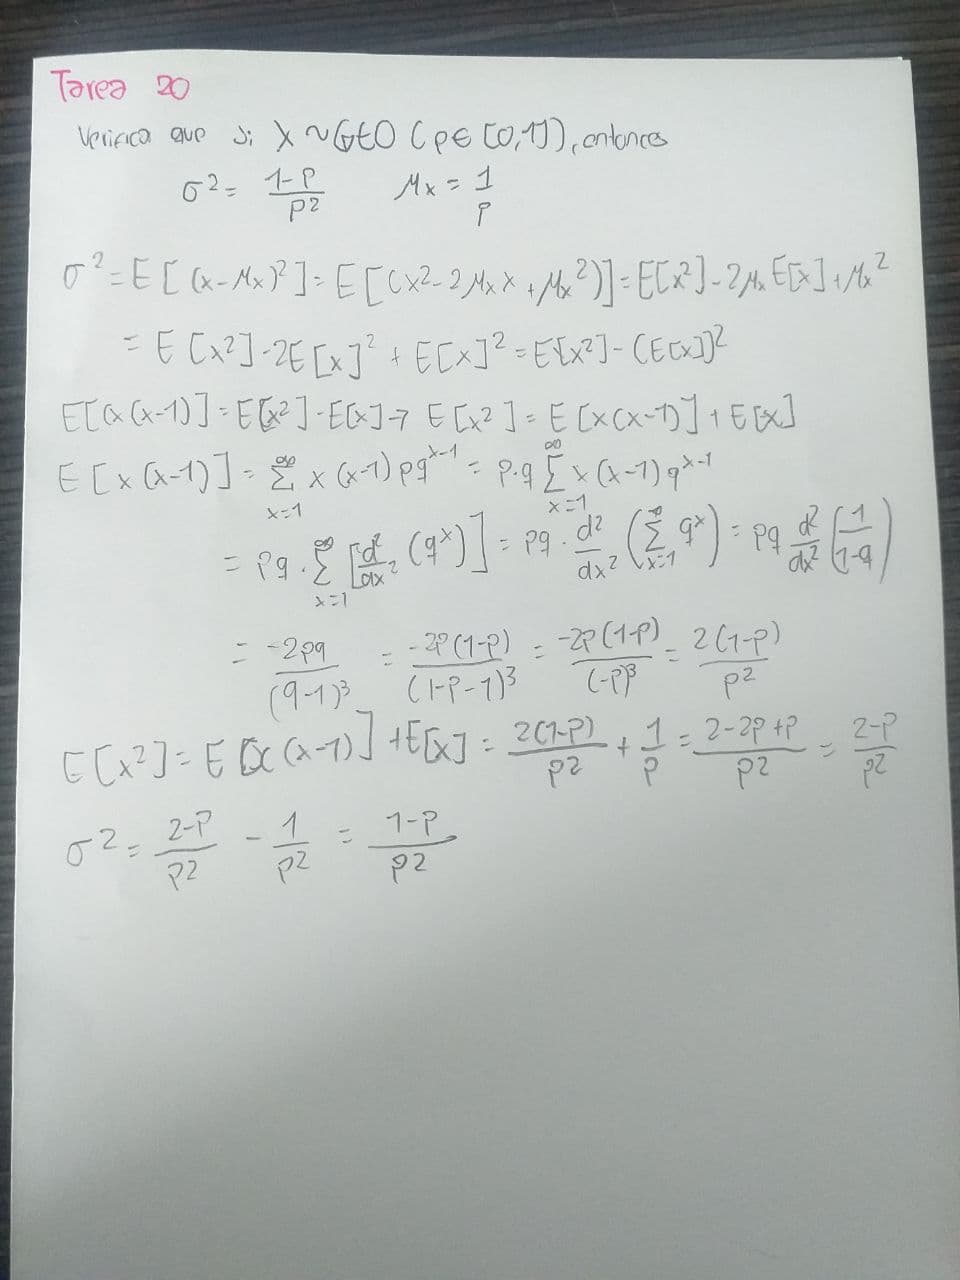 Tarea 20
Verifica que si X ~ GEO (p ∈ [0,1]), entonces
σ² = (1-P)/P² μx = 1/P
σ² = E[(x-μx)²] = E[(x²-2μx x + μx²)] = E[x²]-2μx E[x]+μx²
= E[x²]-2E[x]² + E[x]² = E[x²]-(E[x])²
E[x(x-1)] = E[x²]-E[x] → E[x²] = E[x(x-1)] + E[x]
E[x(x-1)] = ∑_{x=1}^{∞} x(x-1)pq^{x-1} = p·q ∑_{x=1}^{∞} x(x-1)q^{x-1}
= pq · ∑_{x=1}^{∞} [d²/dx² (q^x)] = pq · d²/dx² (∑_{x=1}^{∞} q^x) = pq d²/dx² (1/(1-q))
= -2pq/(q-1)³ = -2P(1-P)/(1-P-1)³ = -2P(1-P)/(-P)³ = 2(1-P)/P²
E[x²] = E[x(x-1)] + E[x] = 2(1-P)/P² + 1/P = (2-2P+P)/P² = (2-P)/P²
σ² = (2-P)/P² - 1/P² = (1-P)/P²